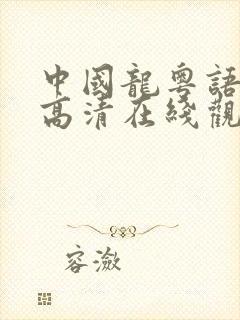 中國龍粵語
高清在綫觀
容潋